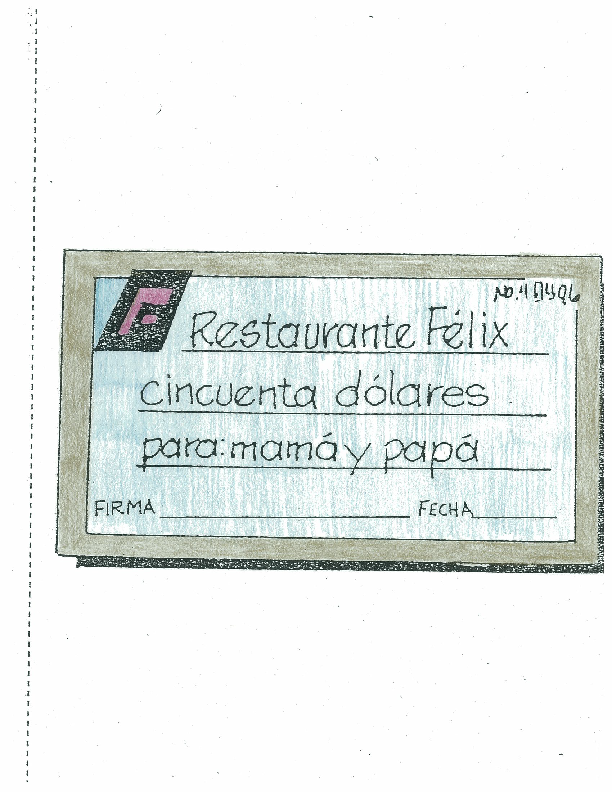 F
Restaurante Félix
cincuenta dólares
para: mamá y papá
FIRMA FECHA